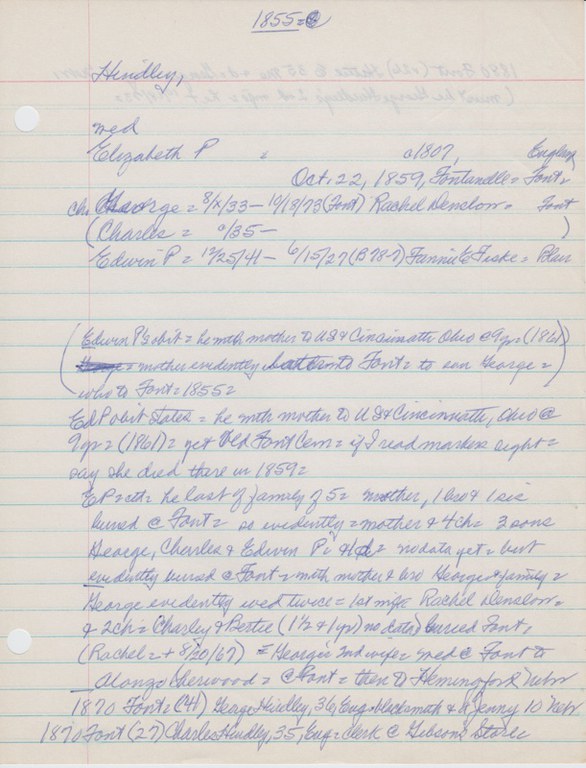 1855=
Hindley,
wed
Elizabeth P = c1807, England
Oct. 22, 1859, Fontanelle = Font=
ch. George = 8/x/33 – 10/13/73 (Font) Rachel Denslow = Font
(Charles = c/35 – )
Edwin P = 12/25/41 – 6/15/27 (B 78-7) Fannie E Fiske = Blair
(Edwin P's obit = he with mother to US & Cincinnati Ohio @ 9 yr = (1861)
= mother evidently to Font = to son George =
who to Font = 1855 =
Ed P obit states = he with mother to US & Cincinnati, Ohio @
9 yr = (1861) = yet Old Font Cem = if I read marker right =
say she died there in 1859 =
EP = he last of family of 5 = mother, 1 bro & 1 sis
buried @ Font = so evidently = mother & 4 ch = 3 sons
George, Charles & Edwin P = & = no data yet = but
evidently buried @ Font = with mother & bro George & family =
George evidently wed twice = 1st wife Rachel Denslow =
& 2 ch = Charley & Bertie (1 1/2 & 1 yr) no data) buried Font =
(Rachel = + 8/20/67) = George's 2nd wife = wed @ Font to
Alonzo Sherwood = @ Font = then to Hemingford, Nebr
1870 Font = (41) George Hindley, 36, Eng = blacksmith & Jenny 10 Nebr
1870 Font (27) Charles Hindley, 35, Eng = clerk @ Gibsons Store =